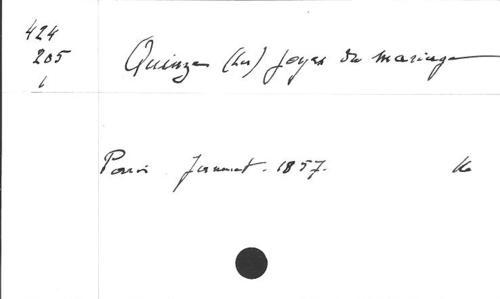 424
205
1
Quinze (Les) joyes du mariage
Paris Jannet. 1857. 16